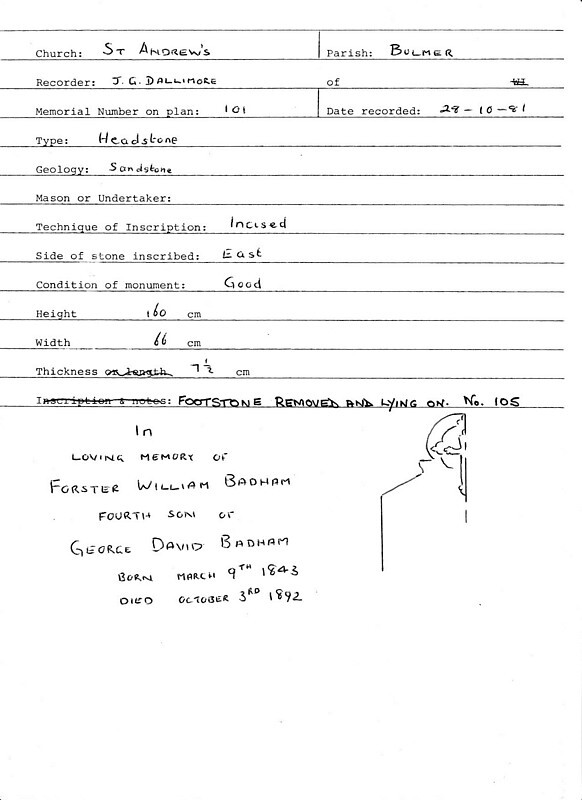 Church: ST ANDREW'S Parish: BULMER
Recorder: J. G. DALLIMORE of WI
Memorial Number on plan: 101 Date recorded: 28-10-81
Type: Headstone
Geology: Sandstone
Mason or Undertaker:
Technique of Inscription: Incised
Side of stone inscribed: East
Condition of monument: Good
Height 160 cm
Width 66 cm
Thickness or length 7 1/2 cm
Inscription & notes: FOOTSTONE REMOVED AND LYING ON. No. 105
In
LOVING MEMORY OF
FORSTER WILLIAM BADHAM
FOURTH SON OF
GEORGE DAVID BADHAM
BORN MARCH 9TH 1843
DIED OCTOBER 3RD 1892